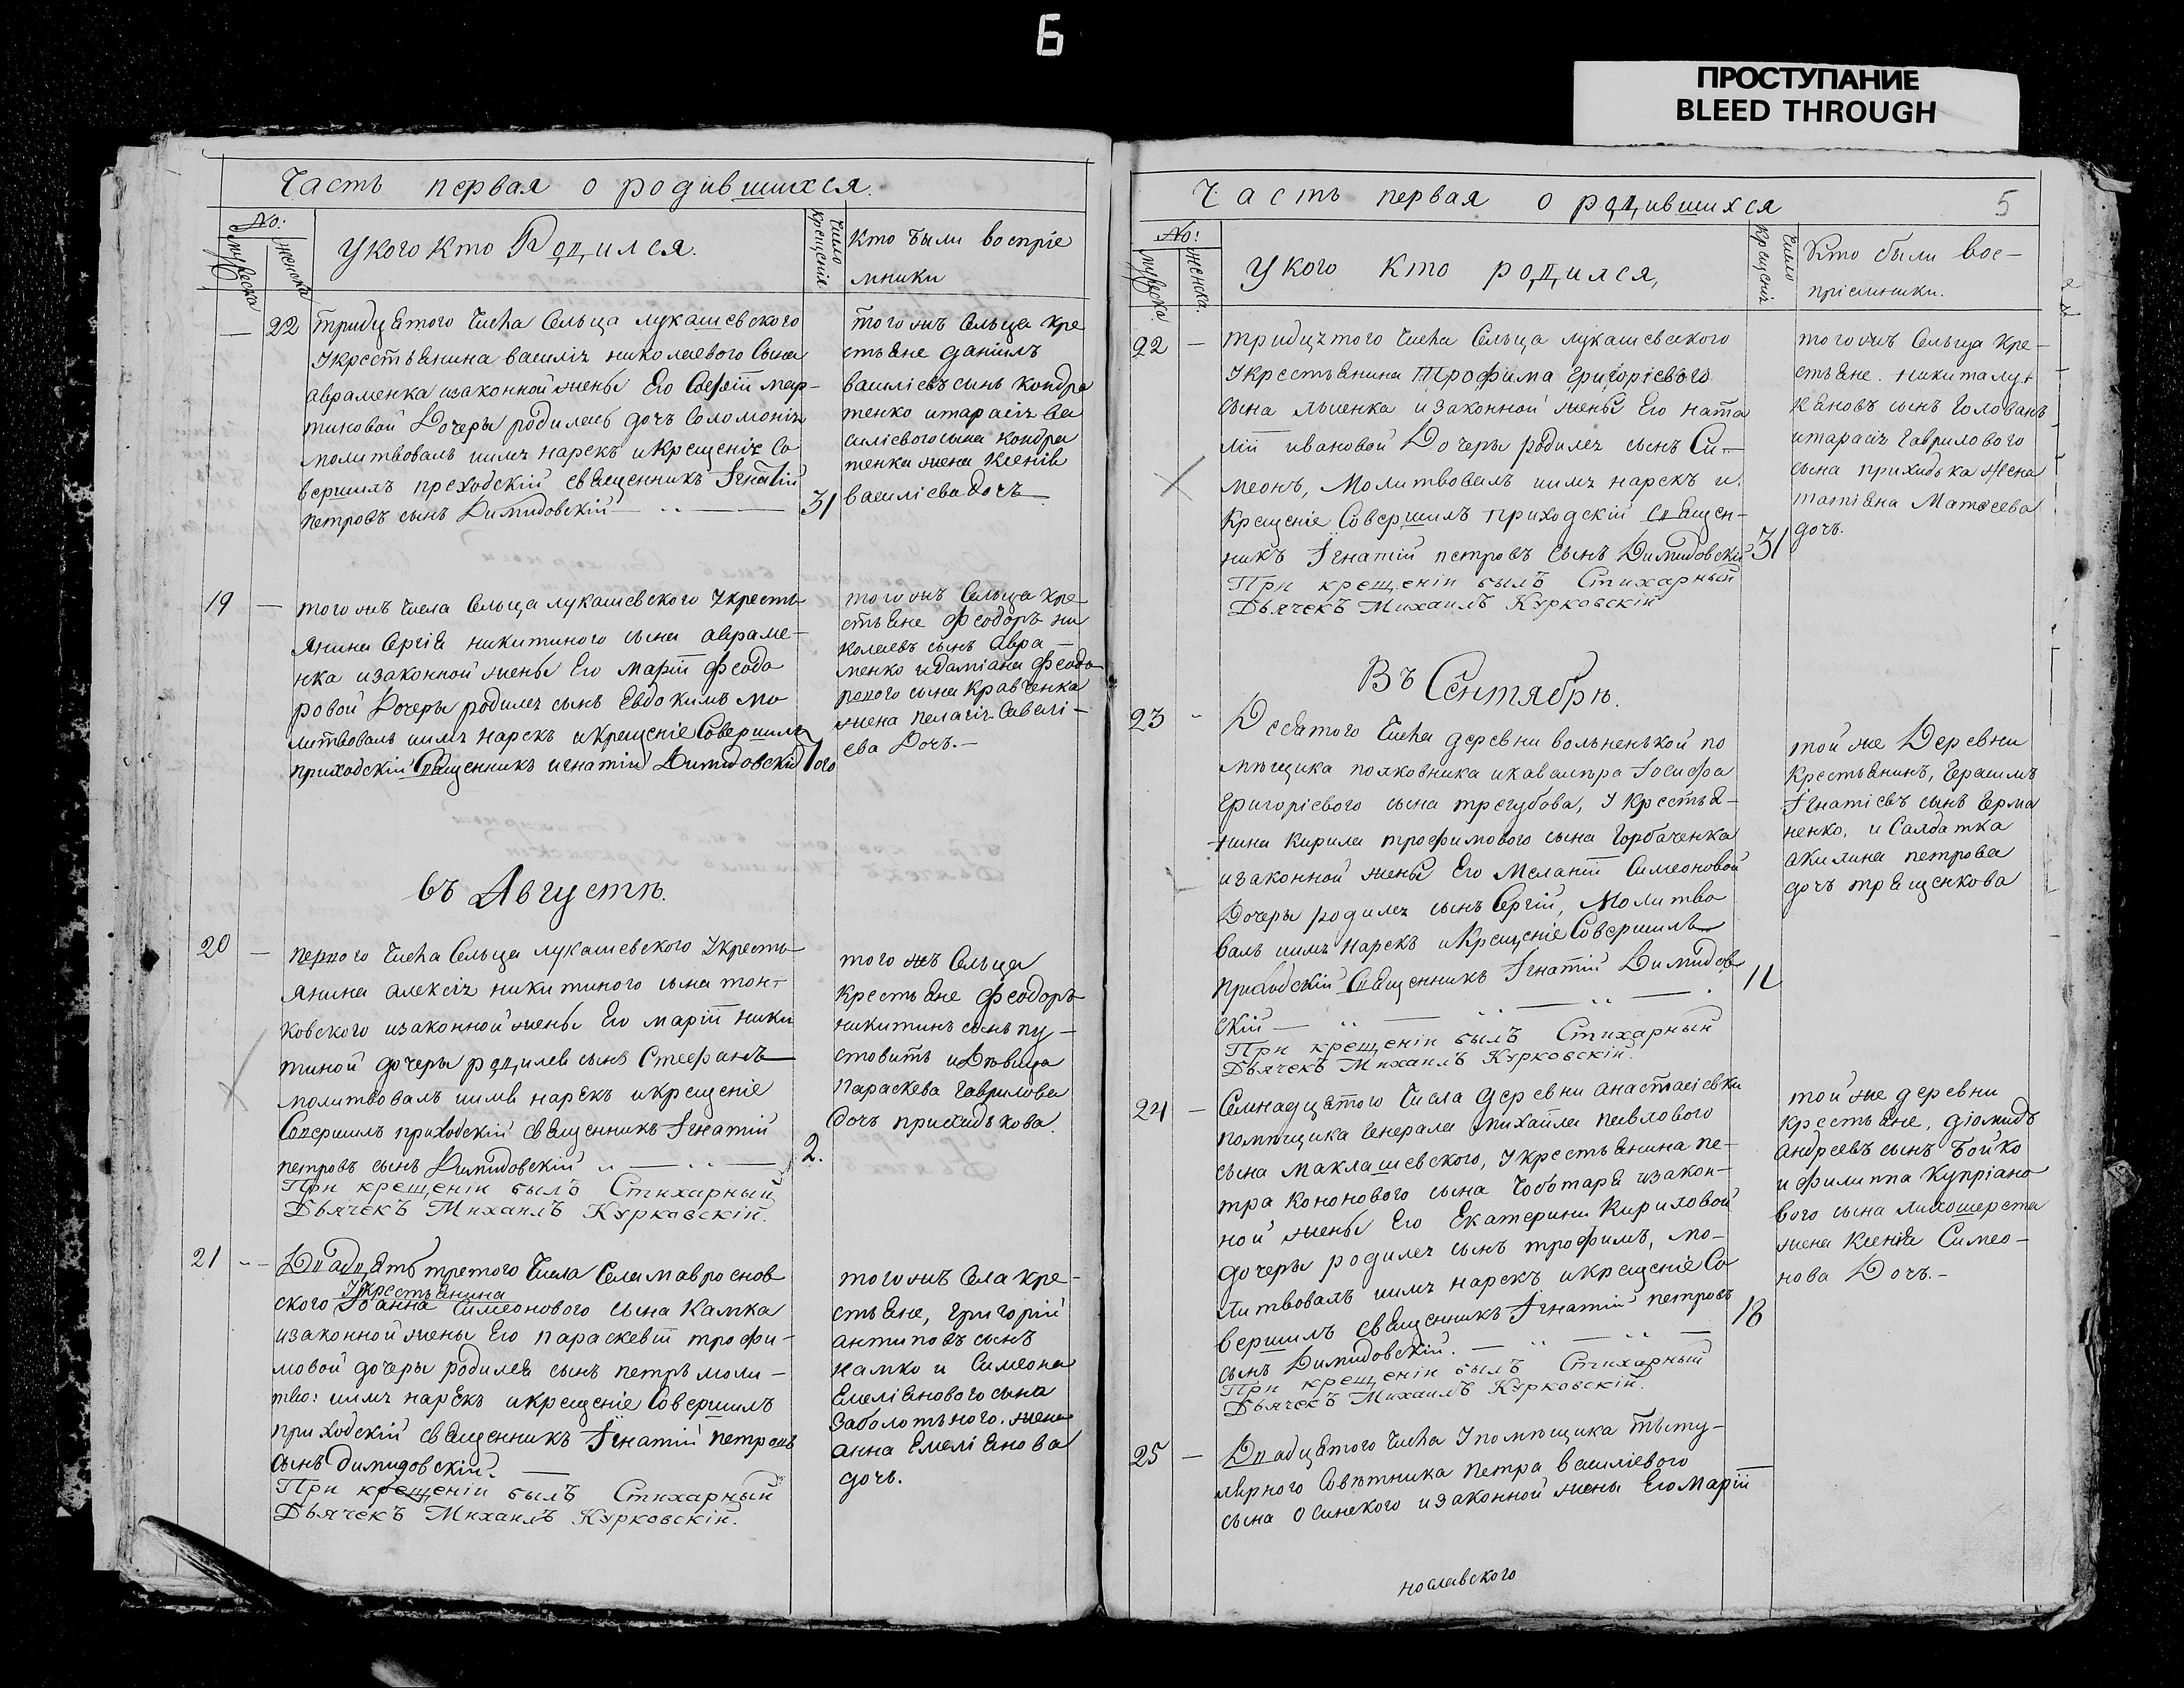 Б
ПРОСТУПАНИЕ
BLEED THROUGH
Часть первая о родившихся.
No:
мужеска
женска
У кого кто Родился.
Число
крещенія
Кто были воспріе
мники
22 тридцятого числа Сельца лукашевского
Укрестьянина василія николаевого сына
авраменка изаконной жены Его Софіи мар-
тиновой Дочеры родилась дочъ Соломонія
молитвовалъ иимя нарекъ икрещеніе Со
вершилъ преходскій священникъ Ігнатій
петровъ сынъ Димидовскій 31
того жъ Сельца кре
стьяне даніилъ
василіевъ сынъ кондра
тенко итарасія ва
силіевого сына кондра
тенка жена ксенія
василіева дочъ
19 — того жъ числа Сельца лукашевского Укресть
янина Сергія никитиного сына авраме-
нка изаконной жены Его маріи феодо
ровой Дочеры родился сынъ Евдокимъ мо
литвовалъ иимя нарекъ икрещеніе Совершилъ
приходскій Священникъ игнатій Димидовскій 1ого
того жъ Сельца кре
стьяне феодоръ ни
колаевъ сынъ Авра-
менко идаміана феодо
рового сына кравченка
жена пелагія Савелі-
ева Дочъ.-
въ Августѣ.
20 — первого числа Сельца лукашевского Укресть
янина алексія никитиного сына тон-
ковского изаконной жены Его маріи ники
тиной дочеры родился сынъ Стефанъ
молитвовалъ иимя нарекъ икрещеніе
Совершилъ приходскій священникъ Ігнатій
петровъ сынъ Димидовскій 2.
При крещеніи былъ Стихарный
Дьячекъ Михаилъ Курковскій.
того жъ Сельца
Крестьяне феодоръ
никитинъ сынъ пу-
стовитъ иДѣвица
параскева гаврилова
дочъ приходькова.
21 -- Двадцять третого числа Села мавроснов
Укрестьянина
ского Іоанна Симеонового сына Камка
изаконной жены Его параскевіи трофи-
мовой дочеры родился сынъ петръ моли-
тво: иимя нарекъ икрещеніе Совершилъ
приходскій священникъ Ігнатій петровъ
сынъ димидовскій.
При крещеніи былъ Стихарный
Дьячекъ Михаилъ Курковскій.
того жъ Села кре-
стьяне, григорій
антиповъ сынъ
камко и Симеона
Емеліанового сына
Заболотьного. жена
анна Емеліанова
дочъ.
Часть первая о родившихся
5
No:
мужеска.
женска.
У кого кто родился,
Число
крещенія
Кто были вос-
пріемники.
22 — тридцятого числа Сельца лукашевского
Укрестьянина Трофима григоріевого
сына ляшенка изаконной жены Его ната
ліи ивановой Дочеры родился сынъ Си-
меонъ, Молитвовалъ иимя нарекъ и
Крещеніе Совершилъ приходскій Священ-
никъ Ігнатій петровъ сынъ Димидовскій 31
При крещеніи былъ Стихарный
Дьячекъ Михаилъ Курковскій
того жъ Сельца кре-
стьяне. никита лу-
кановъ сынъ головань
итарасія гаврилового
сына приходька жена
татіяна Матѳеева
дочъ.
Въ Сентябрѣ.
23 - Десятого числа деревни вольненькой по
мѣщика полковника икавалѣра Іосифа
григоріевого сына трегубова, У Крестья-
нина кирила трофимового сына Горбаченка
изаконной жены Его меланіи Симеоновой
Дочеры родился сынъ Сергій, Молитво
валъ иимя нарекъ иКрещеніе Совершилъ
приходскій Священникъ Ігнатій Димидов
скій 11
При крещеніи былъ Стихарный
Дьячекъ Михаилъ Курковскій.
той же Деревни
Крестьянинъ, герасимъ
Ігнатіевъ сынъ Ерма
ненко, и Салдатка
акилина петрова
дочъ трященкова
24 — Семнадцятого числа деревни анастасіевки
помѣщика генерала михаила павлового
сына маклашевского, Укрестьянина пе-
тра кононового сына Чоботаря изакон-
ной жены Его Екатерины Кириловой
дочеры родился сынъ трофимъ, мо-
литвовалъ иимя нарекъ икрещеніе Со
вершилъ священникъ Ігнатій петровъ
сынъ Димидовскій. 18
При крещеніи былъ Стихарный
Дьячекъ Михаилъ Курковскій.
той же деревни
крестьяне, діомидъ
андреевъ сынъ Бойко
и филиппа Купріано
вого сына лихошерста
жена ксенія Симео-
нова Дочъ.-
25 — Двадцятого числа Упомѣщика тѣту-
лярного Совѣтника петра василіевого
сына Осинского изаконной жены Его Маріи
нославского